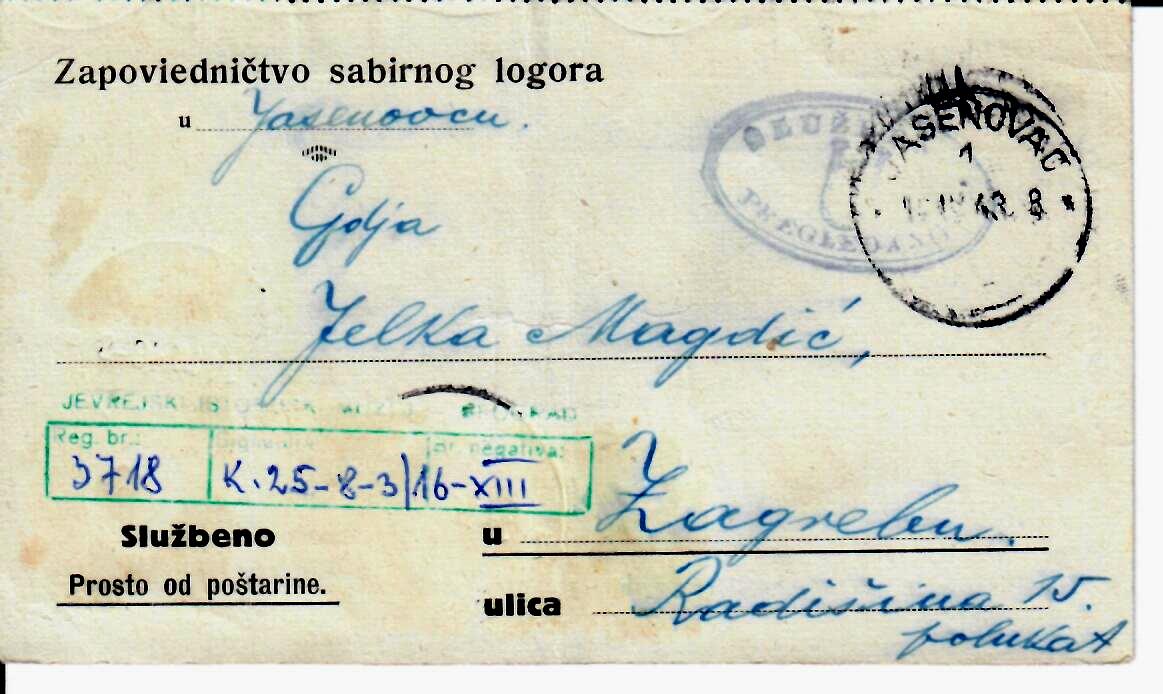 Zapovjedničtvo sabirnog logora
u Jasenovcu.
SLUŽBENO
PREGLEDANO
JASENOVAC
1
43 8
Gdja
Jelka Magdić,
JEVREJSKI BEOGRAD
Reg. br.: Br. negativa:
3718 K. 25-8-3/16-XIII
Službeno
Prosto od poštarine.
u Zagrebu.
ulica Radišina 15.
polukat